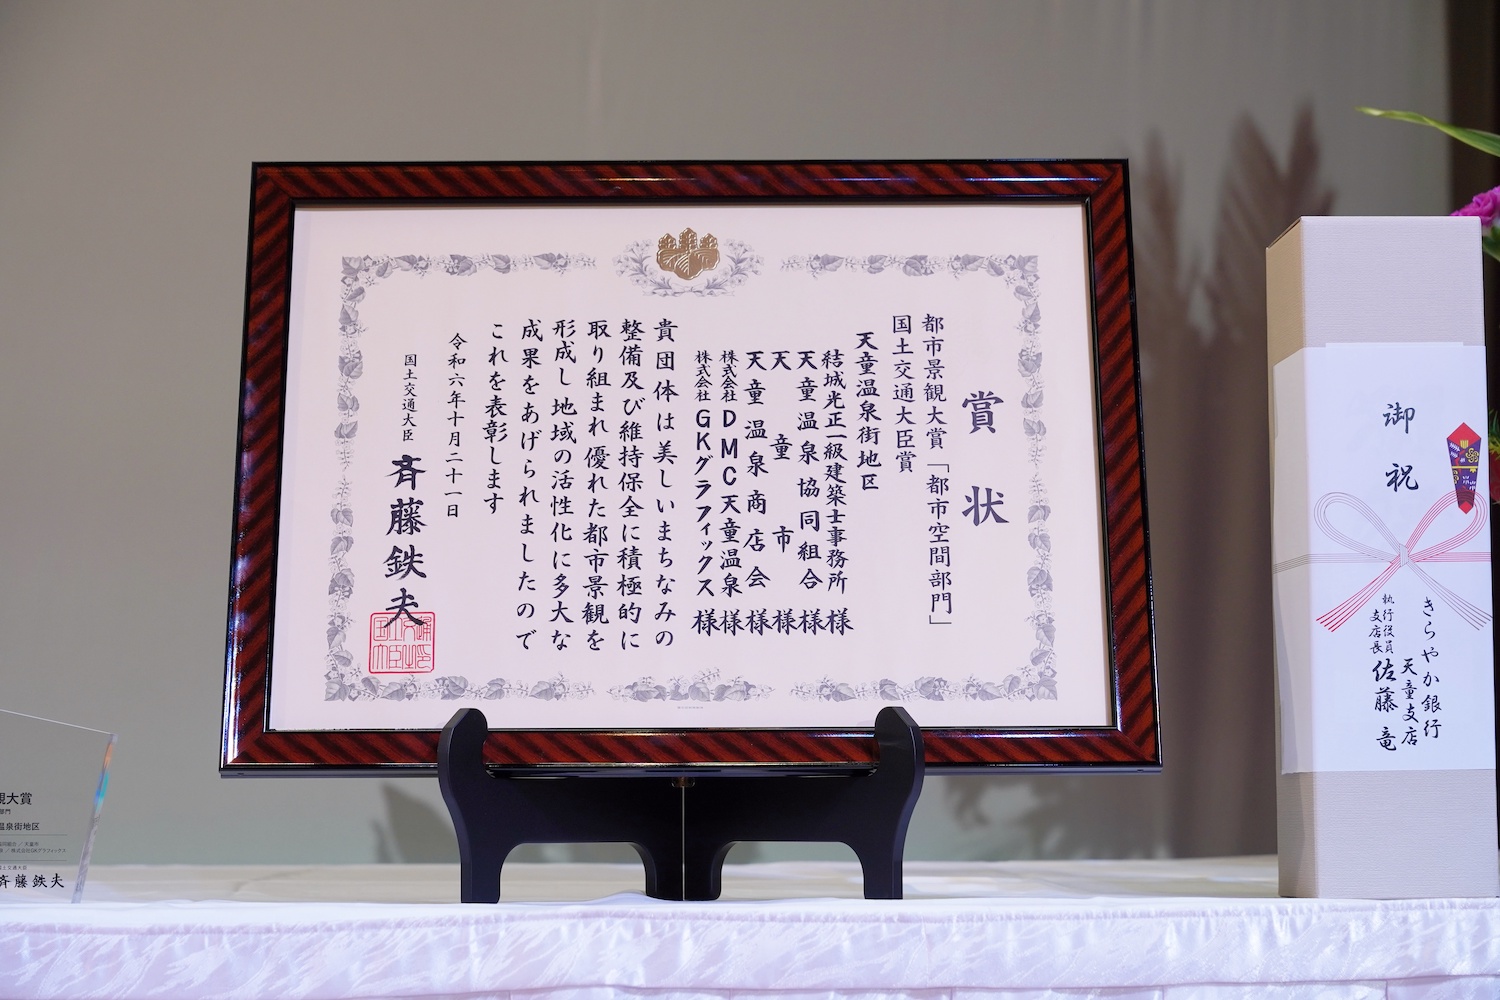 賞状
都市景観大賞「都市空間部門」
国土交通大臣賞
天童温泉街地区
結城光正一級建築士事務所様
天童温泉協同組合様
天童市様
天童温泉商店会様
株式会社DMC天童温泉様
株式会社GKグラフィックス様
貴団体は美しいまちなみの
整備及び維持保全に積極的に
取り組まれ優れた都市景観を
形成し地域の活性化に多大な
成果をあげられましたので
これを表彰します
令和六年十月二十一日
国土交通大臣 斉藤鉄夫
国土交通大臣印
御祝
きらやか銀行
天童支店
執行役員
支店長 佐藤竜
観大賞
部門
温泉街地区
／天童市
／株式会社GKグラフィックス
国土交通大臣
斉藤鉄夫